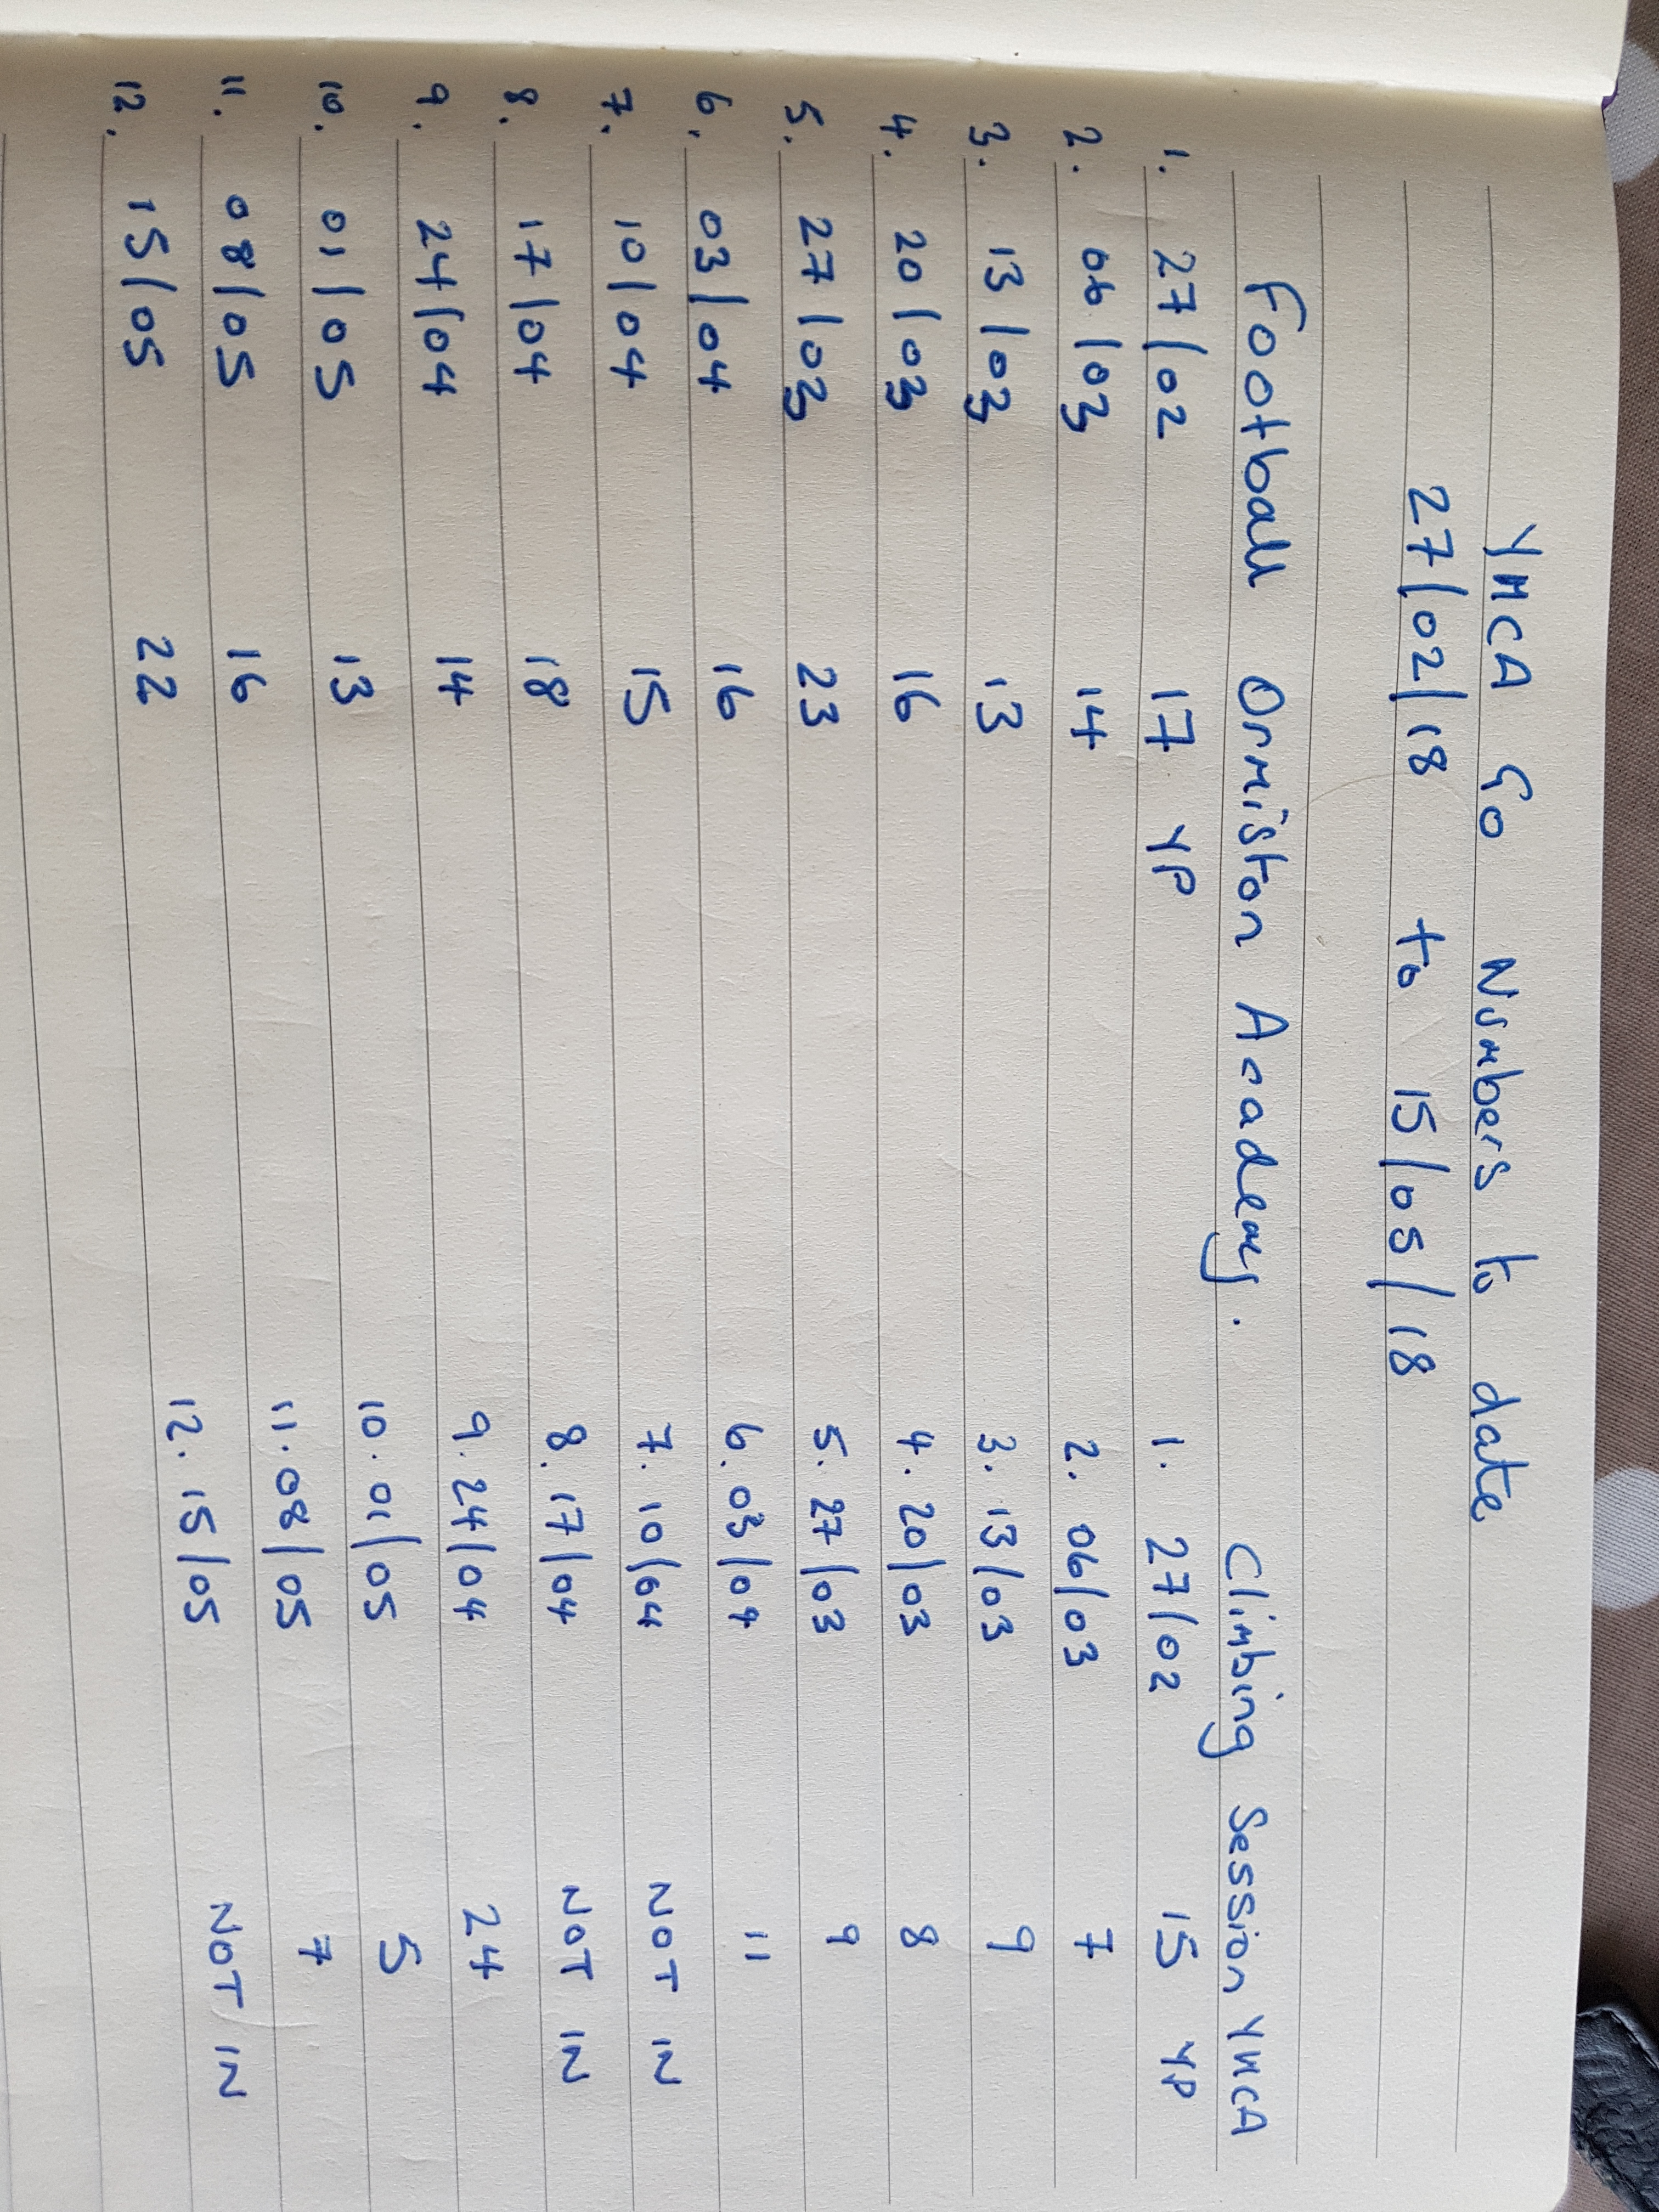 YMCA Go Numbers to date
27/02/18 to 15/05/18
Football Ormiston Academy. Climbing Session YMCA
1. 27/02 17 YP 1. 27/02 15 YP
2. 06/03 14 2. 06/03 7
3. 13/03 13 3. 13/03 9
4. 20/03 16 4. 20/03 8
5. 27/03 23 5. 27/03 9
6. 03/04 16 6. 03/04 11
7. 10/04 15 7. 10/04 NOT IN
8. 17/04 18 8. 17/04 NOT IN
9. 24/04 14 9. 24/04 24
10. 01/05 13 10. 01/05 5
11. 08/05 16 11. 08/05 7
12. 15/05 22 12. 15/05 NOT IN